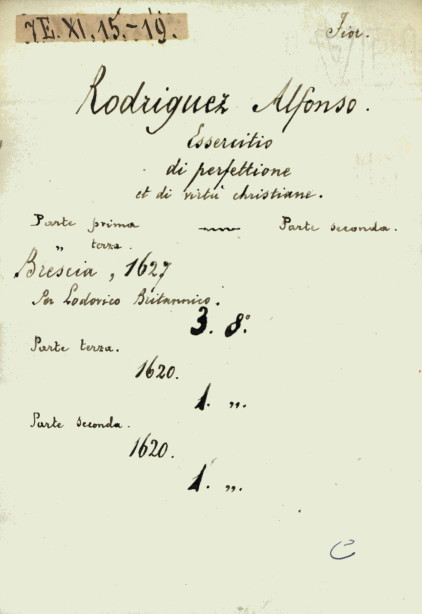 7E. XI, 15.-19.
Fior.
Rodriguez Alfonso.
Essercitio
di perfettione
et di virtù christiane.
Parte prima — Parte seconda.
„ terza.
Brescia, 1627
Per Lodovico Britannico.
3. 8°
Parte terza.
1620.
1. „.
Parte seconda.
1620.
1. „.
C